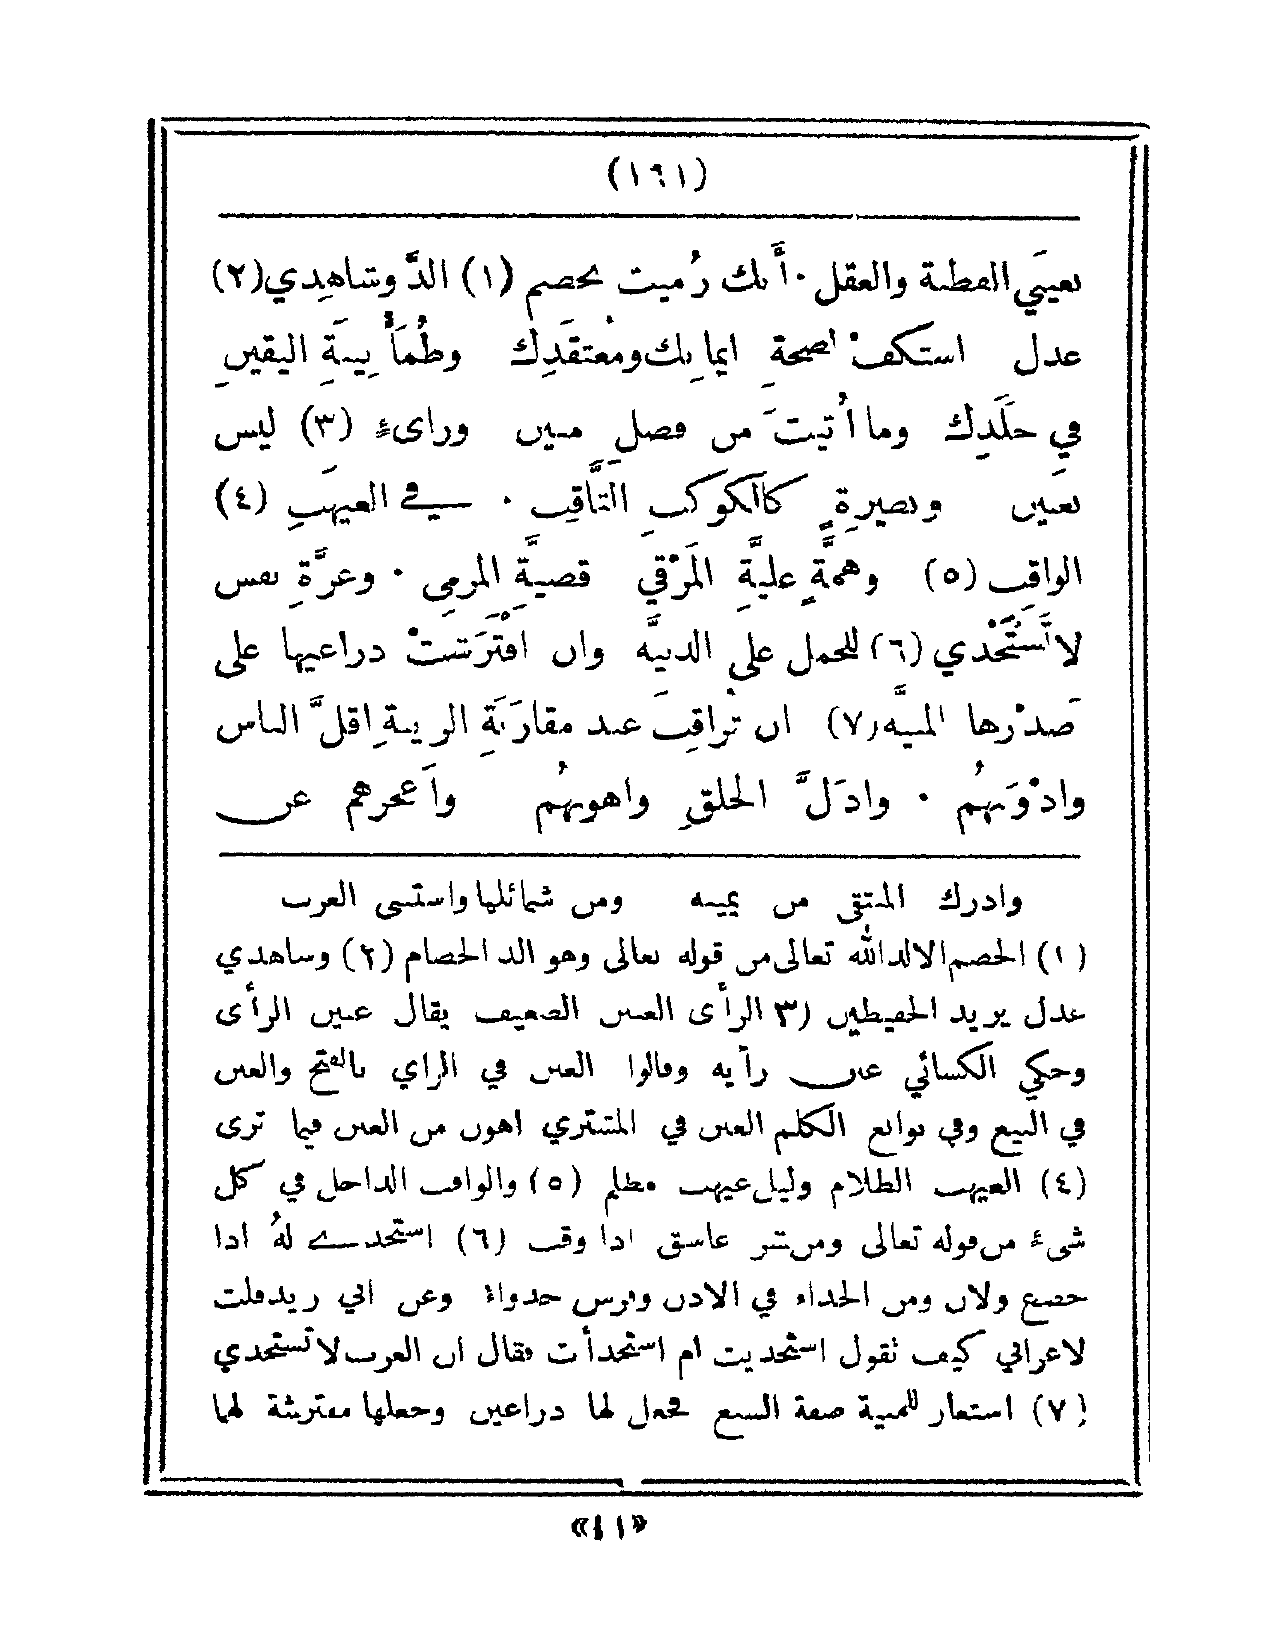 (١٦١)
بعيني الفطنة والعقل · أنك رُميت بخصم (١) الدّ وشاهدي (٢)
عدل استكفْ لصحة ايمانِك ومُعتقَدِك وطُمَأْنينَةِ اليقينِ
في خلَدِك وما أُتيتَ من فصل مبين ورأىء (٣) ليس
بغبين وبصيرةٍ كالكوكبِ الثَّاقِبِ · في الغيهبِ (٤)
الواقب (٥) وهمَّةٍ عليَّةِ المَرْقي قصيَّةِ المرمى · وعزَّةِ نفس
لا تَسْتَخْذي (٦) للحمل على الدنيَّه وان افْتَرَشَتْ ذراعيها على
صدْرها المنيَّه (٧) ان تُراقِبَ عند مقارَبَةِ الريبةِ اقلَّ الناس
وادْوَنهُم · واذَلَّ الخلقِ واهونهُم وأعجزهم عن
وادرك المتقى من يمينه ومن شمائلها واستسى العرب
(١) الخصم الالد الله تعالى من قوله تعالى وهو الد الخصام (٢) وشاهدي
عدل يريد الحفيظين (٣ الرأى الغبين الضعيف يقال غبين الرأى
وحكي الكسائي غبن رأيه وقالوا الغبن في الراي بالفتح والغبن
في البيع وفي نوابغ الكلم الغبن في المشتري اهون من الغبن فيما ترى
(٤) الغيهب الظلام وليل غيهب مظلم (٥) والواقب الداخل في كل
شىء من قوله تعالى ومن شر غاسق اذا وقب (٦) استخذى لهُ اذا
خضع ولان ومن الخذاء في الاذن وفرس خذواء وعن ابي زيد قلت
لاعرابي كيف تقول استخذيت ام استخذأت فقال ان العرب لا تستخذي
(٧) استعار للمنية صفة السبع فجعل لها ذراعين وجعلها مفترشة لهما
«١١»